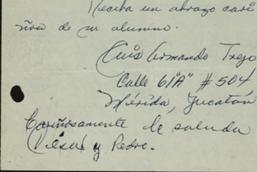 Reciba un abrazo cari
ñoso de su alumno.
Luis Armando Trejo
Calle 61"A" # 504
Mérida, Yucatán
Cariñosamente le saluda
Jesus y Pedro.